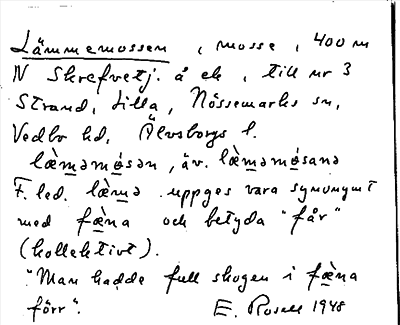 Lämmemossen, mosse, 400 m
N Skrefvetj. å ek, till nr 3
Strand, Lilla, Nössemarks sn,
Vedbo hd, Älvsborgs l.
læ̀məmósən, äv. læ̀məmósanə
F. led. læ̀mə uppges vara synonymt
med fæ̀na och betyda "får"
(kollektivt).
"Man hadde full skogen i fæ̀na
förr". E. Rosell 1948